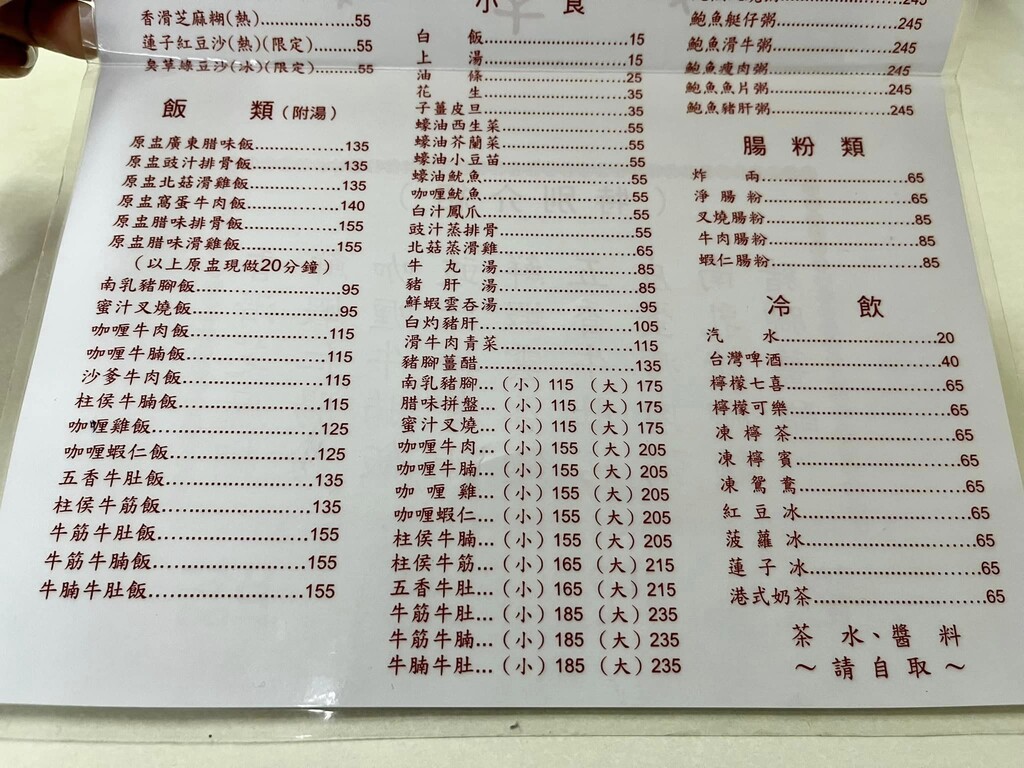 香滑芝麻糊(熱)....................55
蓮子紅豆沙(熱)(限定)...........55
臭草綠豆沙(冰)(限定)...........55
飯 類（附湯）
原盅廣東腊味飯....................135
原盅豉汁排骨飯....................135
原盅北菇滑雞飯....................135
原盅窩蛋牛肉飯....................140
原盅腊味排骨飯....................155
原盅腊味滑雞飯....................155
（以上原盅現做20分鐘）
南乳豬腳飯....................95
蜜汁叉燒飯....................95
咖喱牛肉飯....................115
咖喱牛腩飯....................115
沙爹牛肉飯....................115
柱侯牛腩飯....................115
咖喱雞飯....................125
咖喱蝦仁飯....................125
五香牛肚飯....................135
柱侯牛筋飯....................135
牛筋牛肚飯....................155
牛筋牛腩飯....................155
牛腩牛肚飯....................155
小 食
白 飯....................15
上 湯....................15
油 條....................25
花 生....................35
子薑皮旦....................35
蠔油西生菜....................55
蠔油芥蘭菜....................55
蠔油小豆苗....................55
蠔油魷魚....................55
咖喱魷魚....................55
白汁鳳爪....................55
豉汁蒸排骨....................55
北菇蒸滑雞....................65
牛 丸 湯....................85
豬 肝 湯....................85
鮮蝦雲吞湯....................95
白灼豬肝....................105
滑牛肉青菜....................115
豬腳薑醋....................135
南乳豬腳...（小）115 （大）175
腊味拼盤...（小）115 （大）175
蜜汁叉燒...（小）115 （大）175
咖喱牛肉...（小）155 （大）205
咖喱牛腩...（小）155 （大）205
咖 喱 雞...（小）155 （大）205
咖喱蝦仁...（小）155 （大）205
柱侯牛腩...（小）155 （大）205
柱侯牛筋...（小）165 （大）215
五香牛肚...（小）165 （大）215
牛筋牛肚...（小）185 （大）235
牛筋牛腩...（小）185 （大）235
牛腩牛肚...（小）185 （大）235
245
鮑魚艇仔粥....................245
鮑魚滑牛粥....................245
鮑魚瘦肉粥....................245
鮑魚魚片粥....................245
鮑魚豬肝粥....................245
腸 粉 類
炸 兩....................65
淨 腸 粉....................65
叉燒腸粉....................85
牛肉腸粉....................85
蝦仁腸粉....................85
冷 飲
汽 水....................20
台灣啤酒....................40
檸檬七喜....................65
檸檬可樂....................65
凍 檸 茶....................65
凍 檸 賓....................65
凍 鴛 鴦....................65
紅 豆 冰....................65
菠 蘿 冰....................65
蓮 子 冰....................65
港式奶茶....................65
茶 水、醬 料
～ 請 自 取 ～